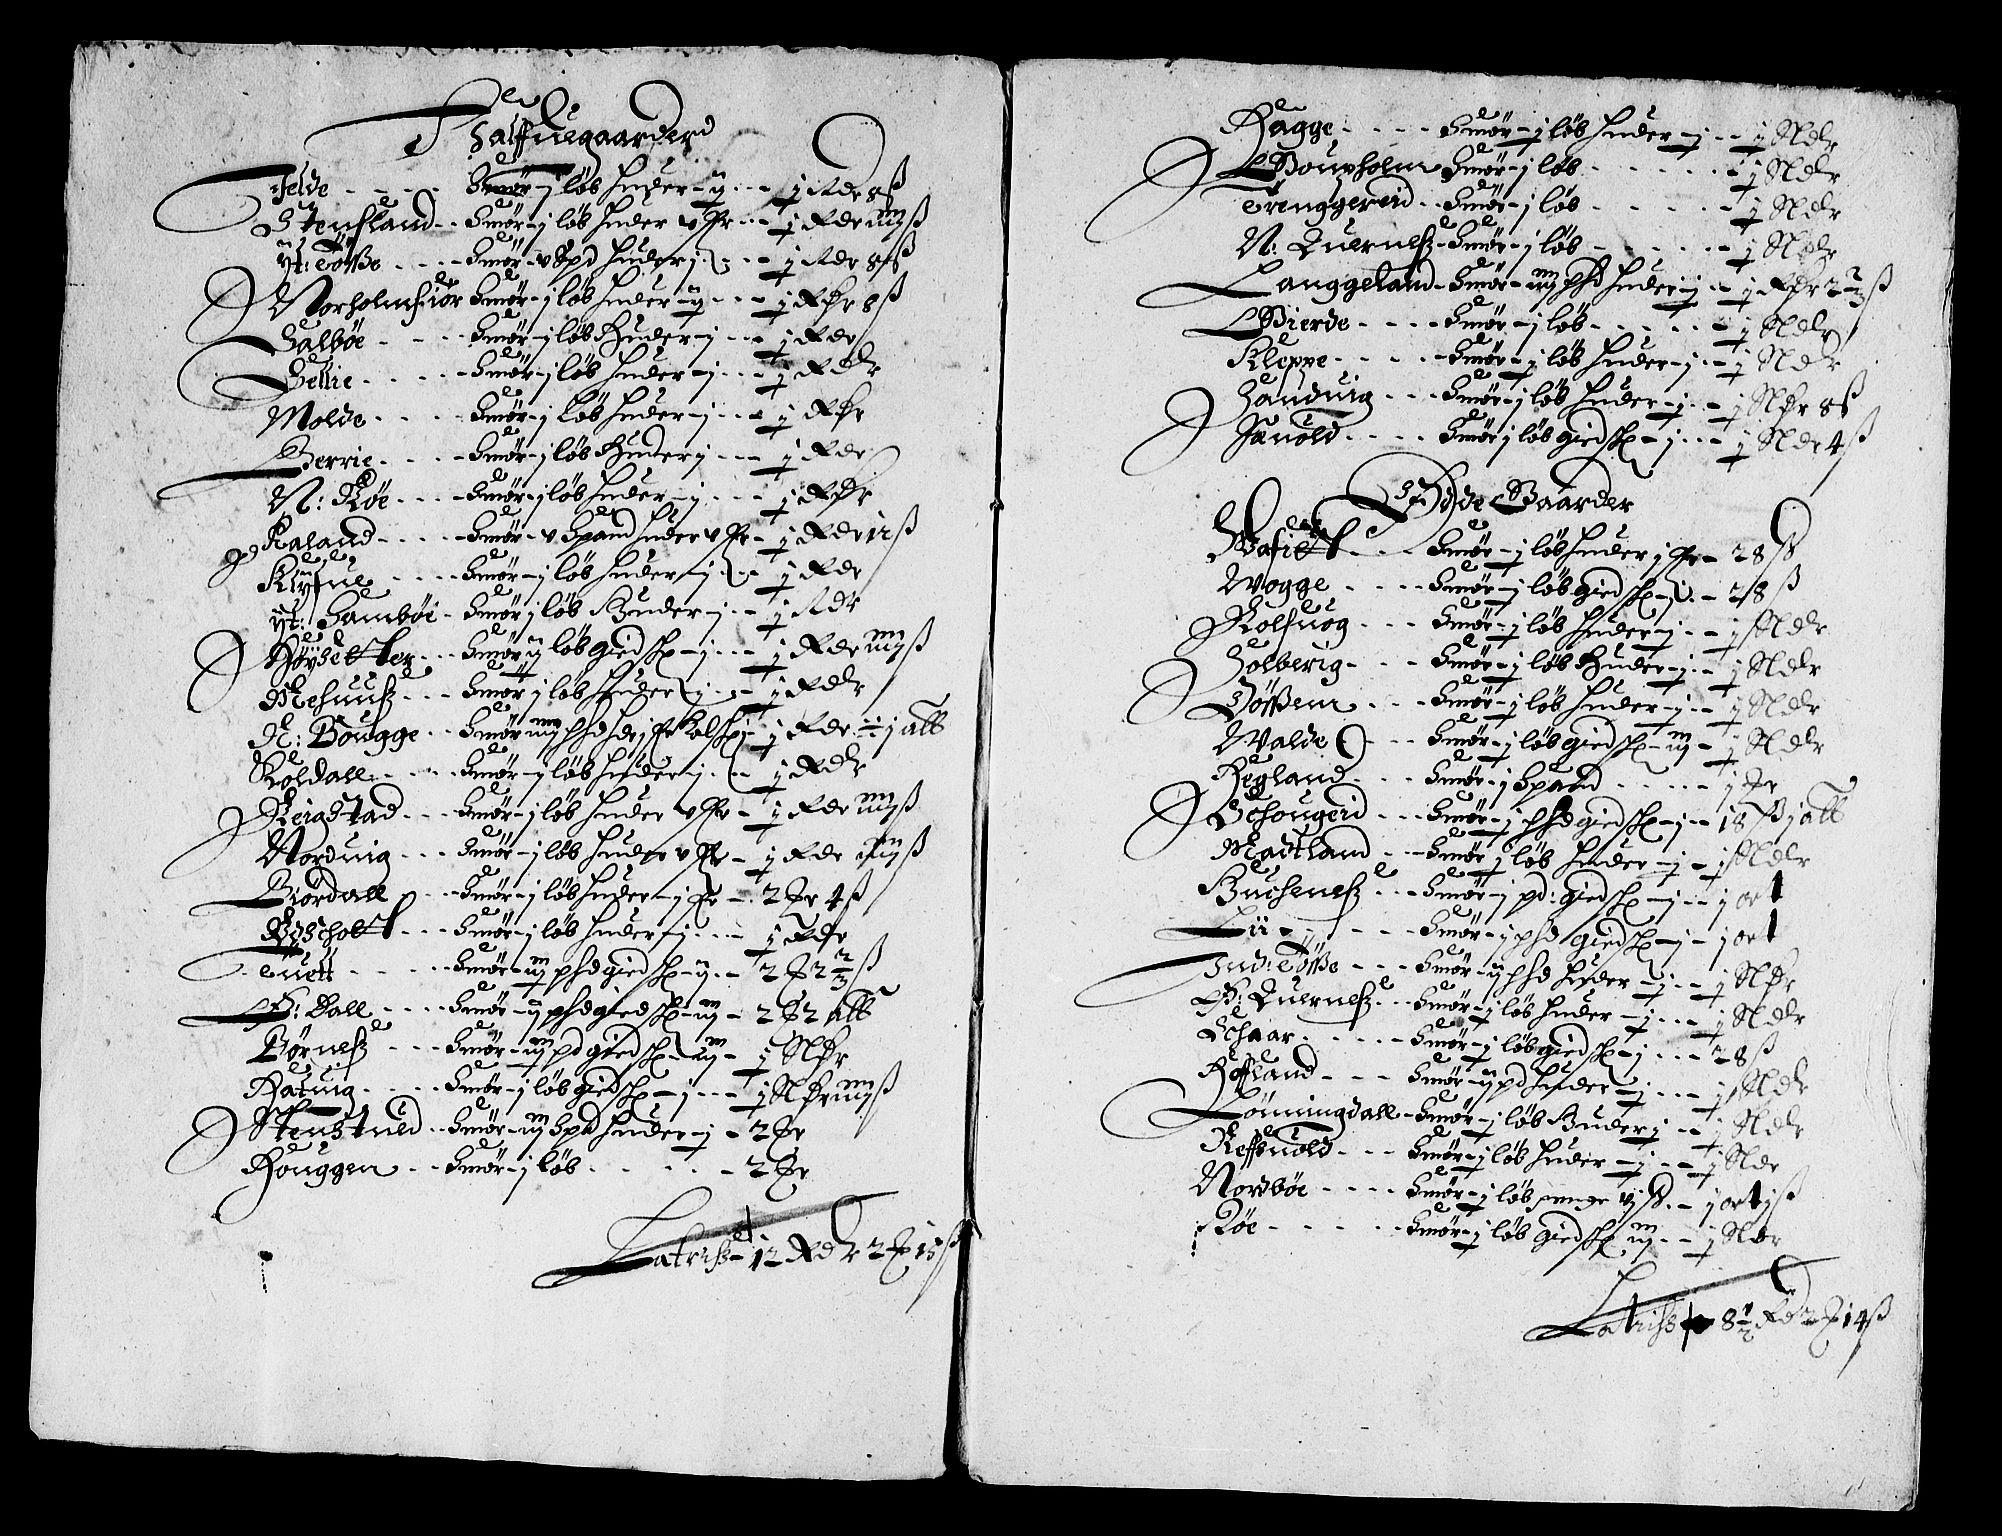 Halffuegaarder
Felde - - - - Smør - j løb Huder - ij - - j Rdr 8 ß
Stensland - - Smør - j løb Huder v Mr - - j Rdr iiij ß
Yt: Tøsße - - - - Smør - v Spd Huder j - - j Rdr 8 ß
Norholmsiør Smør - j løb Huder - ij - - j Rdr 8 ß
Salbøe - - - - Smør - j løb Huder - j - - j Rdr
Sellie - - - - Smør - j løb Huder - j - - j Rdr
Molde - - - - Smør - j løb Huder - j - - j Rdr
Berrie - - - - Smør - j løb Huder j - - j Rdr
N: Røe - - - - Smør - j løb Huder - j - - j Rdr
Raland - - - - Smør - v Spand Huder v Mr - j Rdr 12 ß
Klyfue - - - - Smør - j løb Huder - j - - j Rdr
yt: Sambøe - Smør j løb Huder - j - - j Rdr
Høysetter - - Smør ij løb giedsk - j - - j Rdr iiij ß
Refnuis - - - Smør j løb Huder j - - j Rdr
N: Bougge - - Smør iiij phd j Rdr j alb
Koldall - - - Smør - j løb Huder - j - - j Rdr
Reigstad - - - Smør - j løb Huder v Mr - j Rdr iiij ß
Norduig - - - Smør - j løb Huder v Mr - j Rdr iiij ß
Biørdall - - - Smør - j løb Huder - j Mr - 2 Jr 4 ß
Røscholtt - - - Smør - j løb Huder - j - - - j Rdr
Tuett - - - - Smør - iij phd giedsk - ij - - 2 J 2 2/3 ß
Ø: Dall - - - - Smør - ij phd giedsk - iij - 2 J 2 alb
Børnes - - - Smør - iij pd giedsk - iij - j Rdr
Hatuig - - - - Smør - j løb giedsk - j - - - j Rdr iiij ß
Stenstuid - - Smør - iij Spd Huder - j - 2 Jr
Houggen - - Smør - j løb - - - - - 2 Jr
Latriß - 12 Rdr 2 J 15 ß
Hagge - - - - Smør - j løb Huder - j - - j Rdr
Bouxholm Smør - j løb - - - - - j Rdr
Trenggereid - - Smør - j løb - - - - - j Rdr
N: Quernes - Smør - j løb - - - - - j Rdr
Langgeland - Smør - iiij phd Huder - j - - j Rdr 2 2/3 ß
Gierde - - - - Smør - j løb - - - - - j Rdr
Kleppe - - - - Smør - j løb Huder - j - - j Rdr
Sanduig - - - Smør - j løb Huder - j - - j Rdr 8 ß
Januold - - - - Smør j løb giedsk - j - - - j Rdr 4 ß
Øde Gaarder
- - - Smør - j løb Huder j Mr - 28 ß
Wogge - - - - Smør - j løb giedsk - j - - 28 ß
Rolfuog - - - Smør - j løb Huder - j - - j Rdr
Solberig - - - Smør - j løb Huder - j - - j Rdr
- - - Smør - j løb Huder - j - - j Rdr
Walde - - - Smør - j løb giedsk - iij - j Rdr
Hegland - - - Smør - j Spand - - - - - j Jr
Schougeid - - - Smør - j phd giedsk - j - - 18 ß j alb
Madtland - - Smør j løb Huder - j - j Rdr
Buchenes - - - Smør - j pd: giedsk - j - - j ort
Lii - - - - - Smør - j phd giedsk - j - j ort
Ind: Tøsße - - - Smør - ij phd Huder - j - - j Rdr
Ø: Quernes - - - Smør - j løb Huder - j - - - j Rdr
Schaar - - - - - Smør - j løb giedsk - j - - - 28 ß
Hofland - - - Smør - ij pd Huder - j - - - j Rdr
Lønningdall - Smør - j løb Huder j - - j Rdr
Reffnuold - - - Smør - j løb Huder - j - - - j Rdr
Nordbøe - - - - Smør - j løb penge vj ß - j ort j ß
Røe - - - - - Smør - j løb giedsk iij - - j Rdr
Latriß 8 1/2 Rd 2 J 14 ß